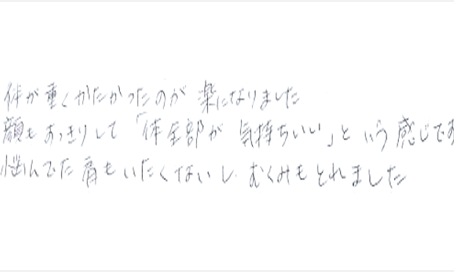 体が重くかたかったのが 楽になりました
顔もすっきりして「体全部が 気持ちいい」と いう 感じです
悩んでた 肩も いたくないし むくみもとれました